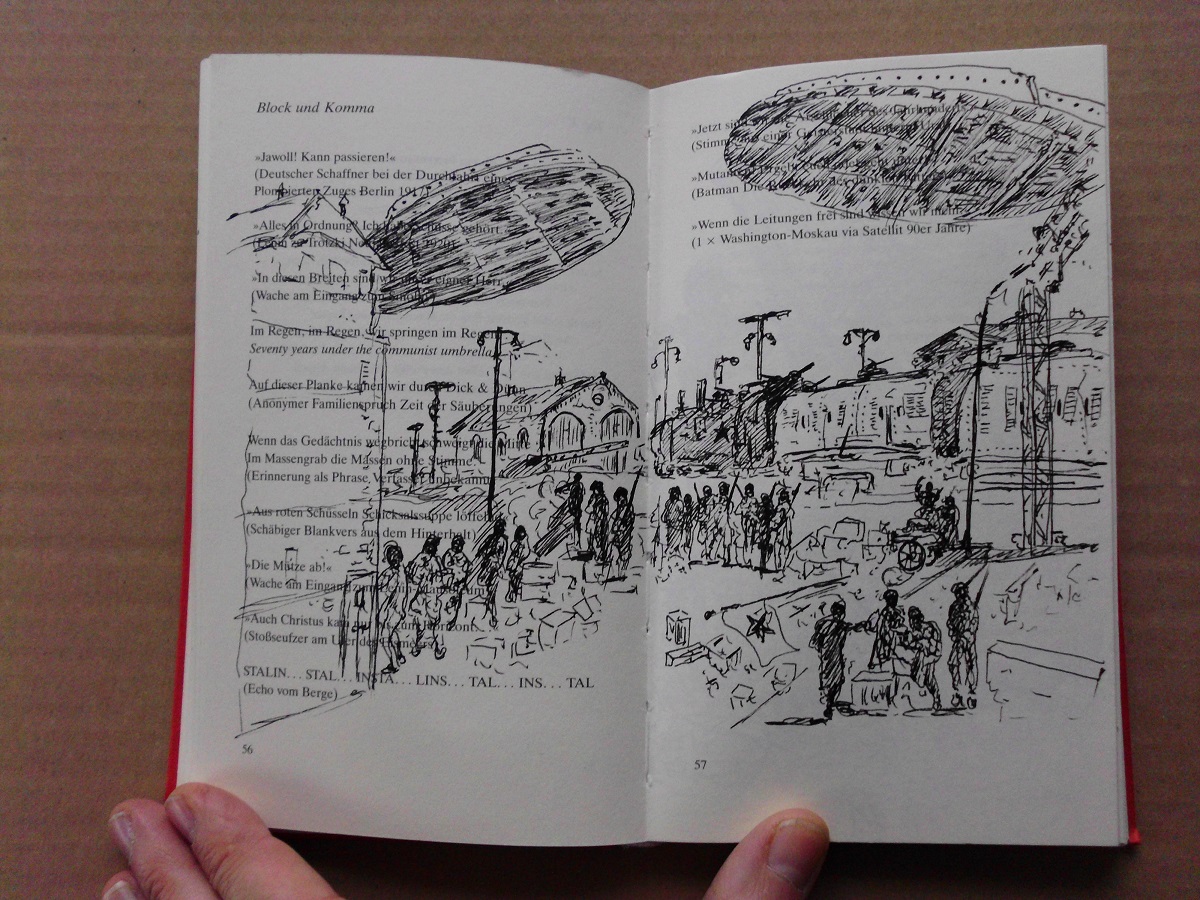 Block und Komma
»Jawoll! Kann passieren!«
(Deutscher Schaffner bei der Durchfahrt eines
Plombierten Zuges Berlin 1917)
»Alles in Ordnung? Ich habe Schüsse gehört.
(Lenin zu Trotzki 1920)
»In diesen Breiten sind wir unser eigner Herr
(Wache am Eingang zum
Im Regen, im Regen, wir springen im Regen
Seventy years under the communist umbrella
Auf dieser Planke kamen wir durch Dick & Dünn
(Anonymer Familienspruch Zeit der Säuberungen)
Wenn das Gedächtnis wegbricht, schweigt die Mitte
Im Massengrab die Massen ohne Stimme.
(Erinnerung als Phrase, Verfasser unbekannt)
»Aus roten Schüsseln Schicksalssuppe löffeln
(Schäbiger Blankvers aus dem Hinterhalt)
»Die Mütze ab!«
(Wache am Eingang zum Lenin-Mausoleum)
»Auch Christus kam nur bis zum Horizont
(Stoßseufzer am Ufer des
STALIN… STAL… INSTA… LINS… TAL… INS… TAL
(Echo vom Berge)
56
»Jetzt sind wir die des Jahrhunderts
(Stimme aus einer
»Mutanten
(Batman Die der
»Wenn die Leitungen frei sind wissen wir mehr
(1 × Washington-Moskau via Satellit 90er Jahre)
57